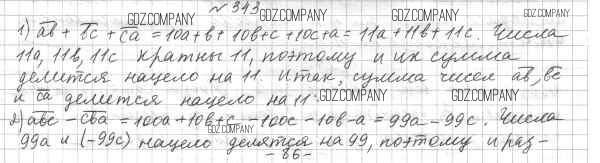 № 343
GDZ.COMPANY GDZ.COMPANY GDZ.COMPANY
1) ab + bc + ca = 10a+b + 10b+c + 10c+a = 11a + 11b + 11c. Числа
11a, 11b, 11c кратны 11, поэтому и их сумма
делится нацело на 11. Итак, сумма чисел ab, bc
и ca делится нацело на 11.
GDZ.COMPANY GDZ.COMPANY
2) abc - cba = 100a + 10b + c - 100c - 10b - a = 99a - 99c. Числа
GDZ.COMPANY
99a и (-99c) нацело делятся на 99, поэтому и раз-
- 86 -